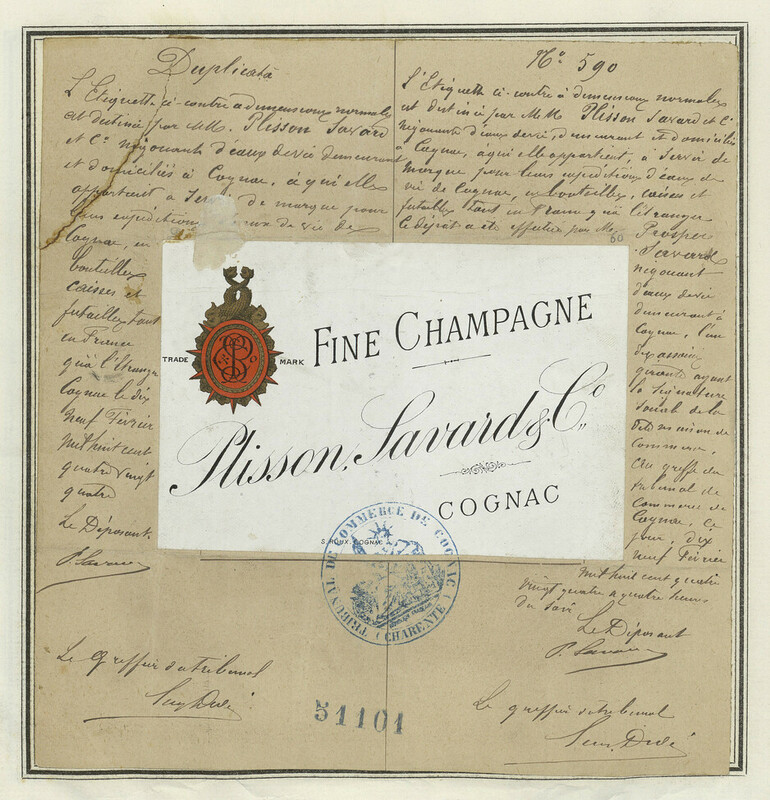 Duplicata
L'Etiquette ci-contre à dimensions normales
est destinée par M.M. Plisson Savard
et Cie négociants d'eaux de vie demeurant
et domiciliés à Cognac, à qui elle
appartient à Servir de marque pour
leurs expéditions d'eaux de vie de
Cognac, en
bouteilles
caisses et
futailles tant
en France
qu'à l'étranger
Cognac le dix
neuf Février
mil huit cent
quatre vingt
quatre
Le Déposant.
P. Savard
Le greffier du tribunal
No 590
L'Etiquette ci-contre à dimensions normales
est destinée par M.M. Plisson Savard et Cie
négociants d'eaux de vie, demeurant et domiciliés
à Cognac, à qui elle appartient, à Servir de
marque pour leurs expéditions d'eaux de
vie de Cognac, en bouteilles, caisses et
futailles tant en France qu'à l'étranger
le dépôt a été effectué par Mr
Prosper
Savard
négociant
d'eaux de vie
demeurant à
Cognac, l'un
des associés
gérants ayant
la signature
sociale de la
dite maison de
commerce.
Au greffe du
tribunal de
commerce de
Cognac, ce
jour, dix
neuf Février
mil huit cent quatre
vingt quatre à quatre heures
du soir
Le Déposant
P. Savard
Le greffier du tribunal
60
TRADE MARK
FINE CHAMPAGNE
Plisson, Savard & Co
COGNAC
S. ROUX, COGNAC
TRIBUNAL DE COMMERCE DE COGNAC
(CHARENTE)
51101